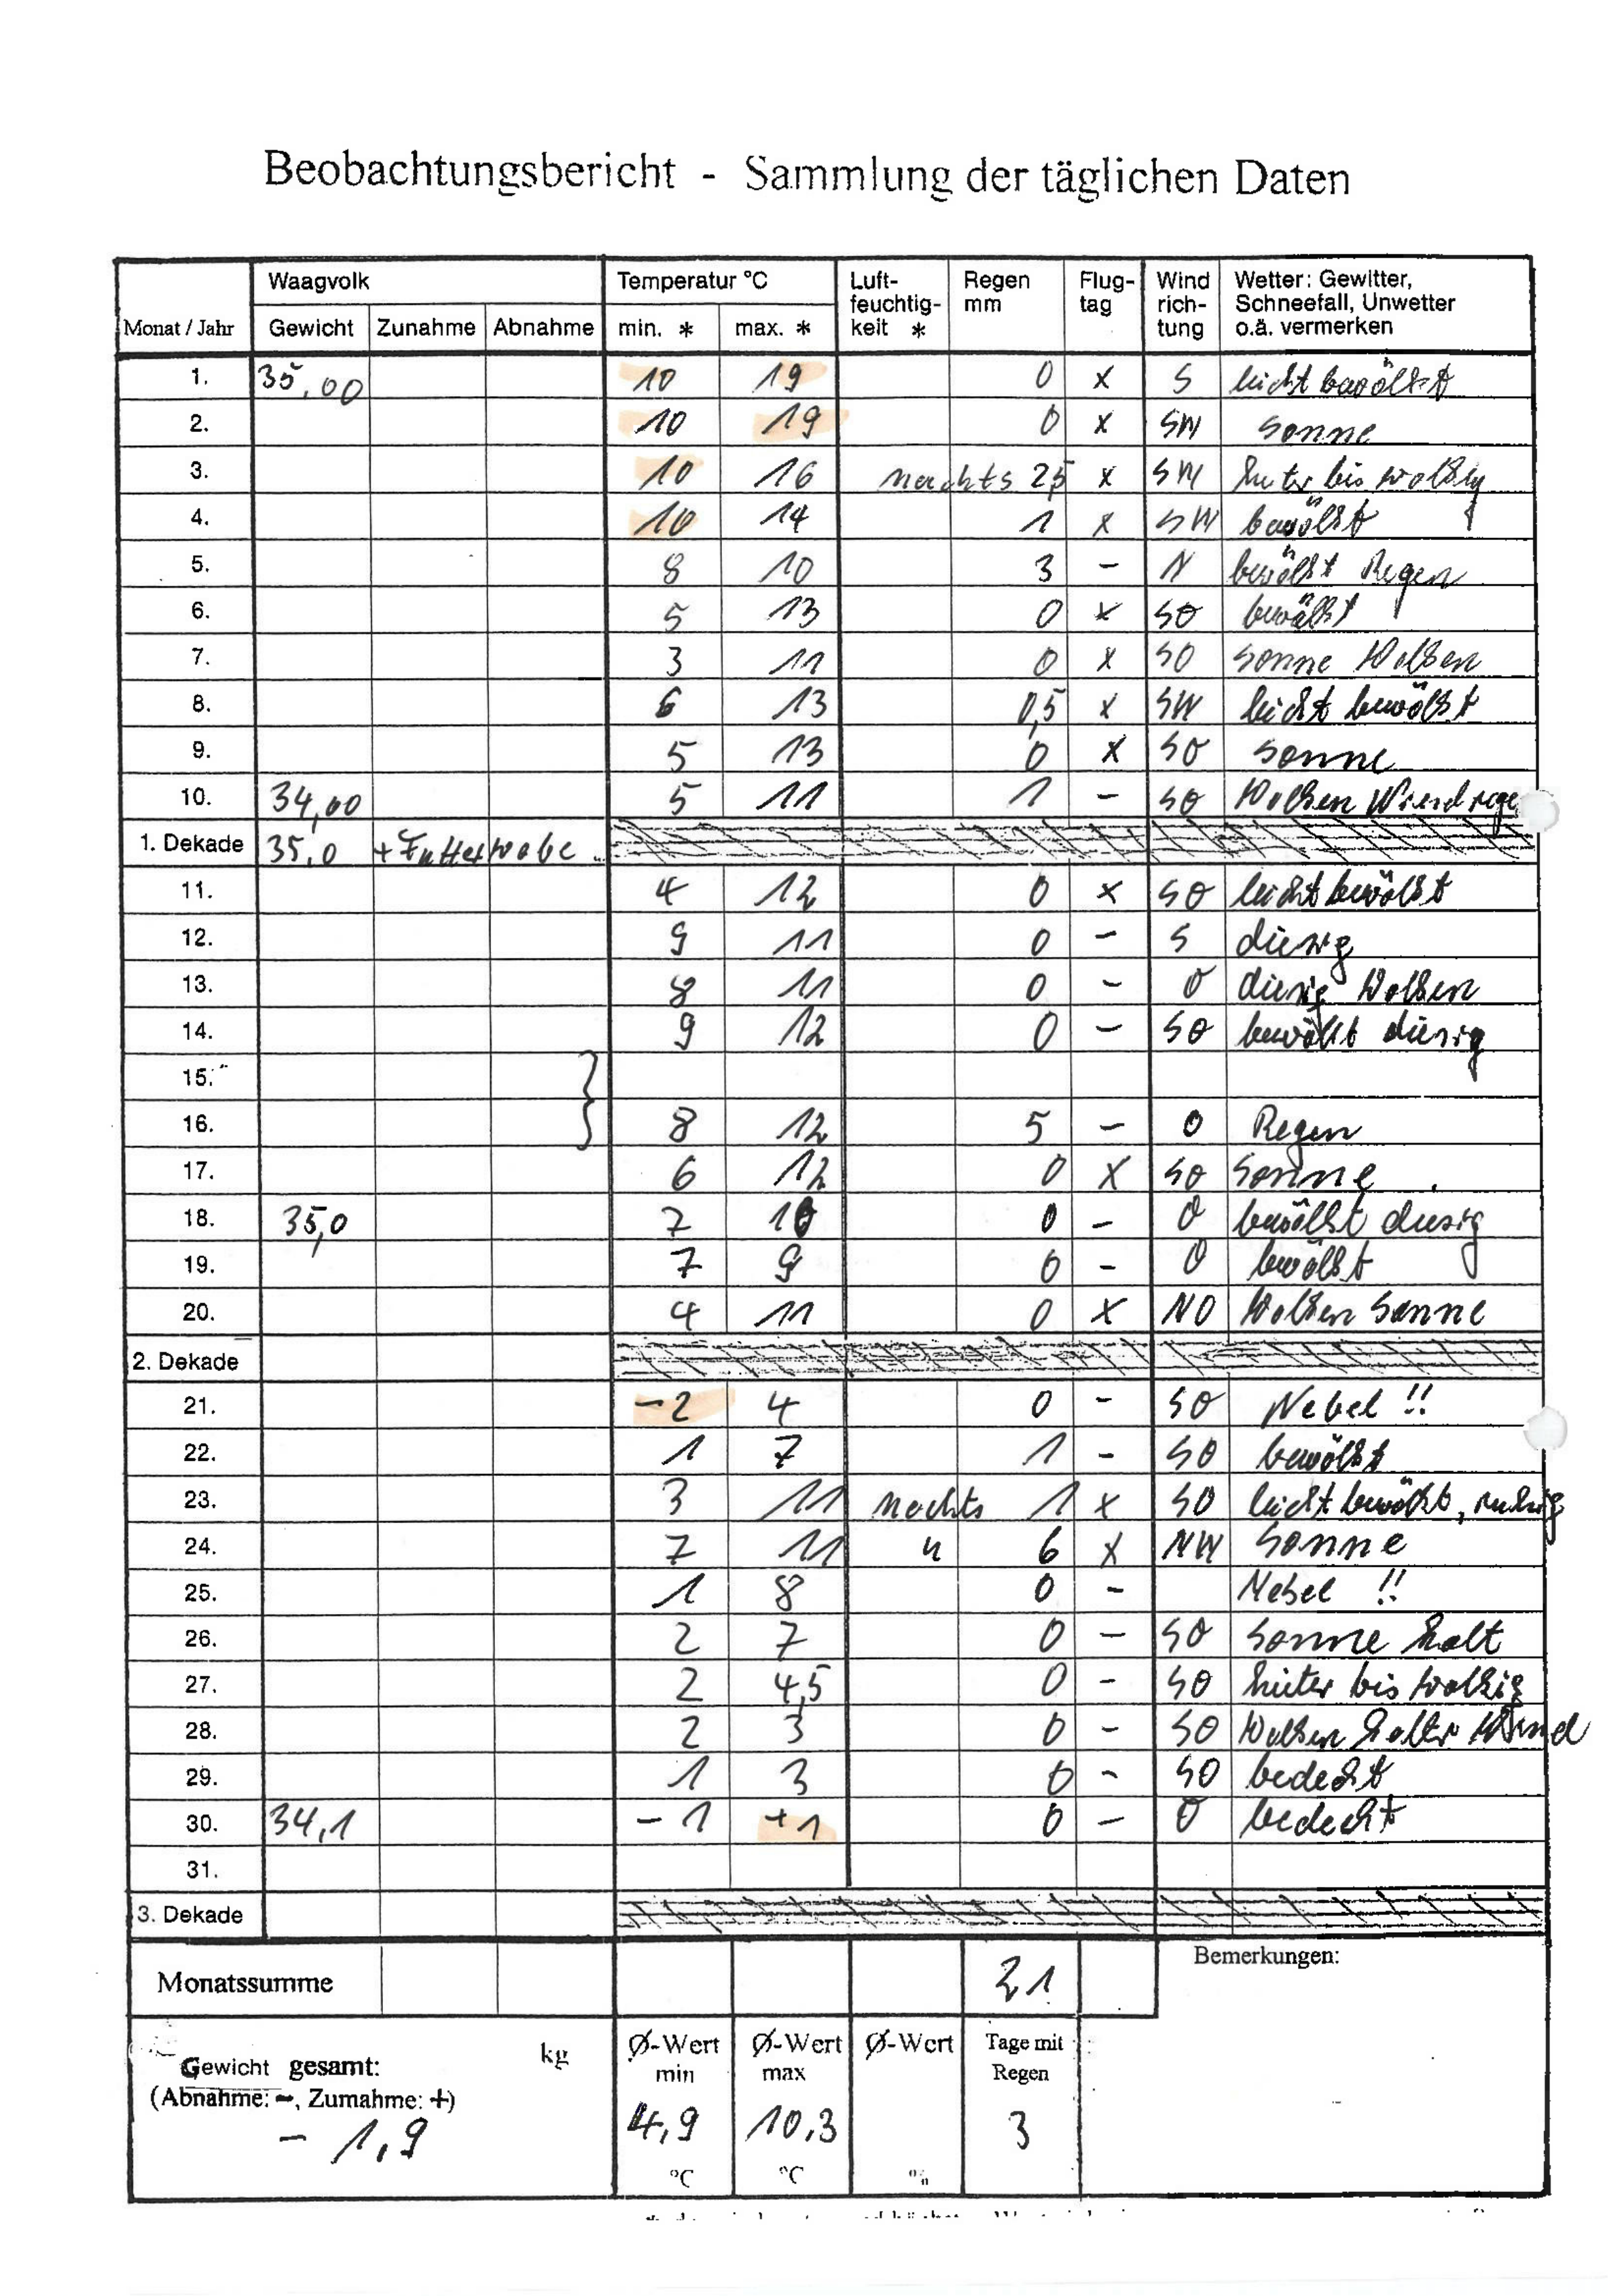 Beobachtungsbericht - Sammlung der täglichen Daten
Monat / Jahr Waagvolk Gewicht Zunahme Abnahme Temperatur °C min. * max. * Luft-feuchtig-keit * Regen mm Flug-tag Wind rich-tung Wetter: Gewitter, Schneefall, Unwetter o.ä. vermerken
1. 35,00 10 19 0 x S leicht bewölkt
2. 10 19 0 x SW Sonne
3. 10 16 nachts 2,5 x SW heiter bis wolkig
4. 10 14 1 x SW bewölkt
5. 8 10 3 - N bewölkt Regen
6. 5 13 0 x SO bewölkt
7. 3 11 0 x SO Sonne Wolken
8. 6 13 0,5 x SW leicht bewölkt
9. 5 13 0 x SO Sonne
10. 34,00 5 11 1 - SO Wolken Wind
1. Dekade 35,0 + Futterwabe
11. 4 12 0 x SO leicht bewölkt
12. 9 11 0 - S diesig
13. 8 11 0 - O diesig Wolken
14. 9 12 0 - SO bewölkt diesig
15. }
16. 8 12 5 - O Regen
17. 6 12 0 x SO Sonne
18. 35,0 7 10 0 - O bewölkt diesig
19. 7 9 0 - O bewölkt
20. 4 11 0 x NO Wolken Sonne
2. Dekade
21. -2 4 0 - SO Nebel !!
22. 1 7 1 - SO bewölkt
23. 3 11 nachts 1 x SO leicht bewölkt, ruhig
24. 7 11 " 6 x NW Sonne
25. 1 8 0 - Nebel !!
26. 2 7 0 - SO Sonne kalt
27. 2 4,5 0 - SO heiter bis wolkig
28. 2 3 0 - SO Wolken kalter Wind
29. 1 3 0 - SO bedeckt
30. 34,1 -1 +1 0 - O bedeckt
31.
3. Dekade
Monatssumme 21 Bemerkungen:
Gewicht gesamt: kg
(Abnahme: -, Zumahme: +)
- 1,9
Ø-Wert min 4,9 °C
Ø-Wert max 10,3 °C
Ø-Wert %
Tage mit Regen 3